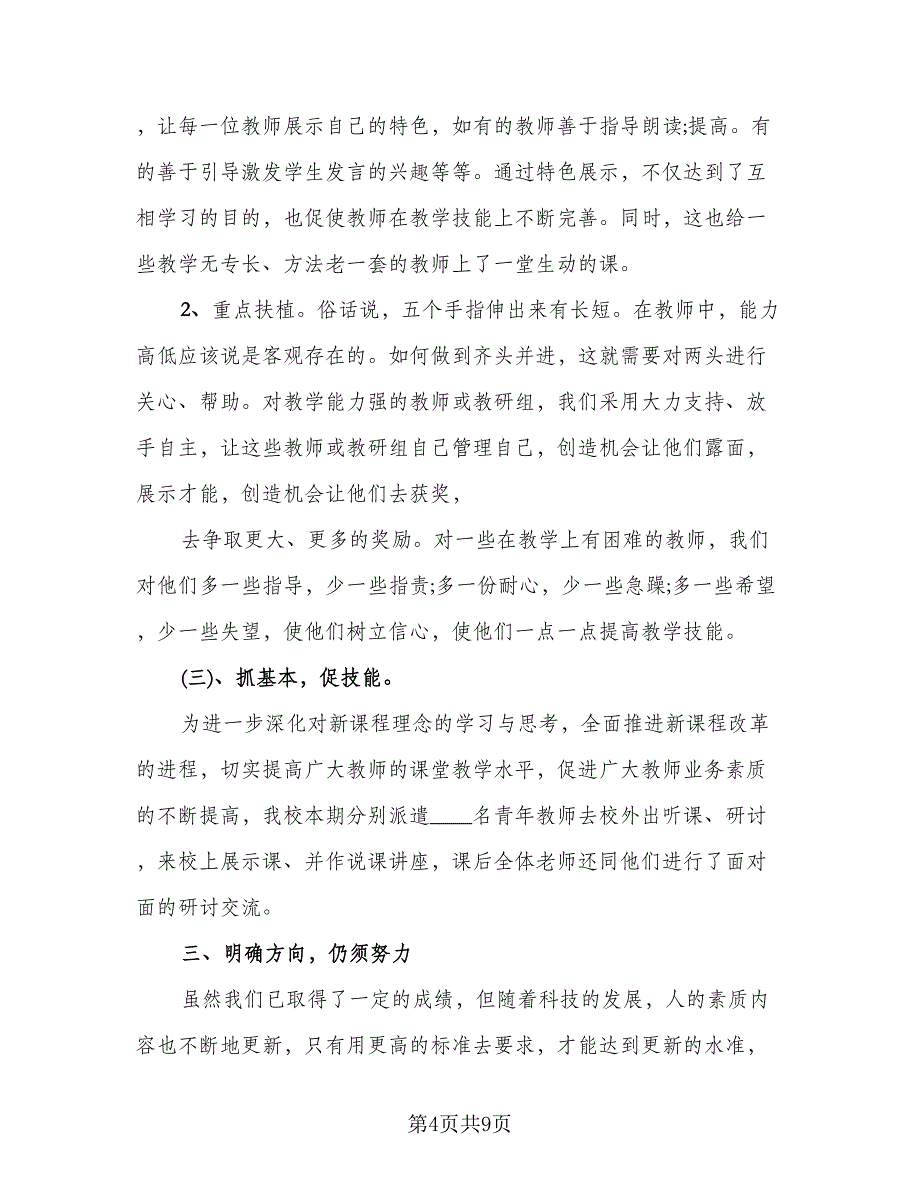 ，让每一位教师展示自己的特色，如有的教师善于指导朗读;提高。有
的善于引导激发学生发言的兴趣等等。通过特色展示，不仅达到了互
相学习的目的，也促使教师在教学技能上不断完善。同时，这也给一
些教学无专长、方法老一套的教师上了一堂生动的课。
2、重点扶植。俗话说，五个手指伸出来有长短。在教师中，能力
高低应该说是客观存在的。如何做到齐头并进，这就需要对两头进行
关心、帮助。对教学能力强的教师或教研组，我们采用大力支持、放
手自主，让这些教师或教研组自己管理自己，创造机会让他们露面，
展示才能，创造机会让他们去获奖，
去争取更大、更多的奖励。对一些在教学上有困难的教师，我们
对他们多一些指导，少一些指责;多一份耐心，少一些急躁;多一些希望
，少一些失望，使他们树立信心，使他们一点一点提高教学技能。
(三)、抓基本，促技能。
为进一步深化对新课程理念的学习与思考，全面推进新课程改革
的进程，切实提高广大教师的课堂教学水平，促进广大教师业务素质
的不断提高，我校本期分别派遣____名青年教师去校外出听课、研讨
，来校上展示课、并作说课讲座，课后全体老师还同他们进行了面对
面的研讨交流。
三、明确方向，仍须努力
虽然我们已取得了一定的成绩，但随着科技的发展，人的素质内
容也不断地更新，只有用更高的标准去要求，才能达到更新的水准，
第4页共9页